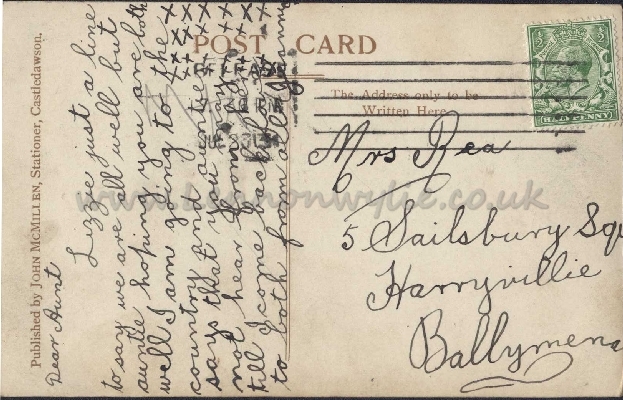 POST CARD
The Address only to be
Written Here.
HALFPENNY
Published by JOHN MCMILLEN, Stationer, Castledawson.
Dear Aunt
Lizzie just a line
to say we are all well but
auntie hoping you are both
well I am going to the
country and auntie
says that you
not hear from
till I come back love
to both from all
Mrs Rea
5 Sailsbury Squ
Harryvillie
Ballymena
www.lennonwylie.co.uk